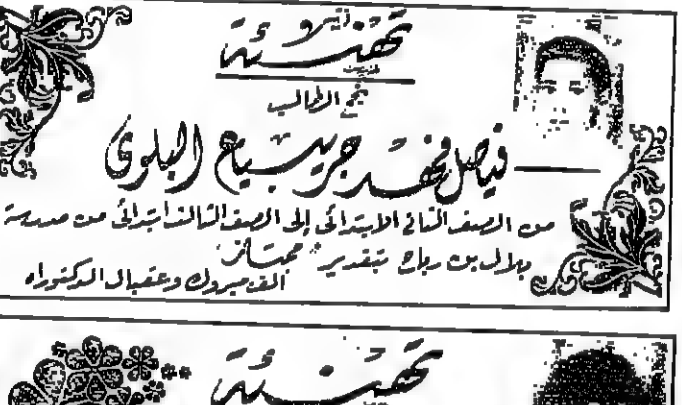 تهنئة
نجح الطالب
فيصل فهد جريبيع البلوي
من الصف الثاني الابتدائي إلى الصف الثالث ابتدائي من مدرسة
بلال بن رباح بتقدير "ممتاز"
الف مبروك وعقبال الدكتوراه
تهنئة